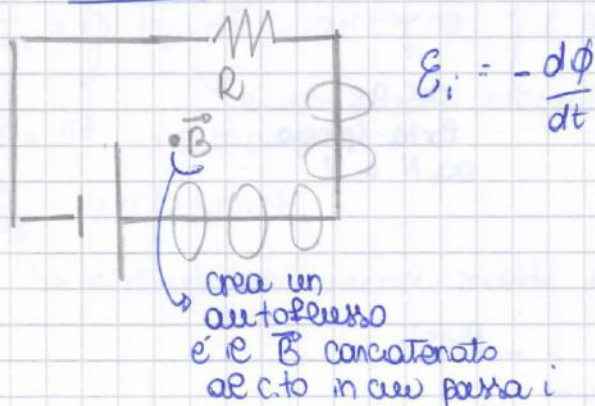 R
ε_i = - dϕ/dt
• B⃗
crea un
autoflusso
é il B⃗ concatenato
al c.to in cui passa i